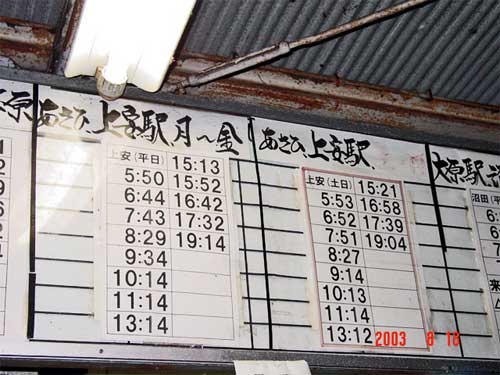 原
あさひ、上安駅、月〜金
上安(平日) 15:13
5:50 15:52
6:44 16:42
7:43 17:32
8:29 19:14
9:34
10:14
11:14
13:14
あさひ、上安駅
上安(土日) 15:21
5:53 16:58
6:52 17:39
7:51 19:04
8:27
9:14
10:13
11:14
13:12
大原駅
沼田(平
2003 8 10